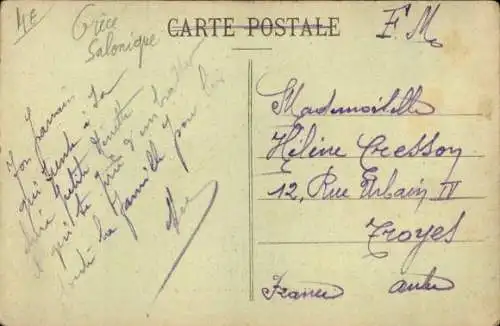 4E
Grèce
Salonique
CARTE POSTALE
F. M.
Ton parrain
qui pense à sa
petite Linette
et qui te prie d'embrasser
toute la famille pour lui
Mademoiselle
Hélène Cresson
12, Rue Urbain IV
Troyes
France Aube